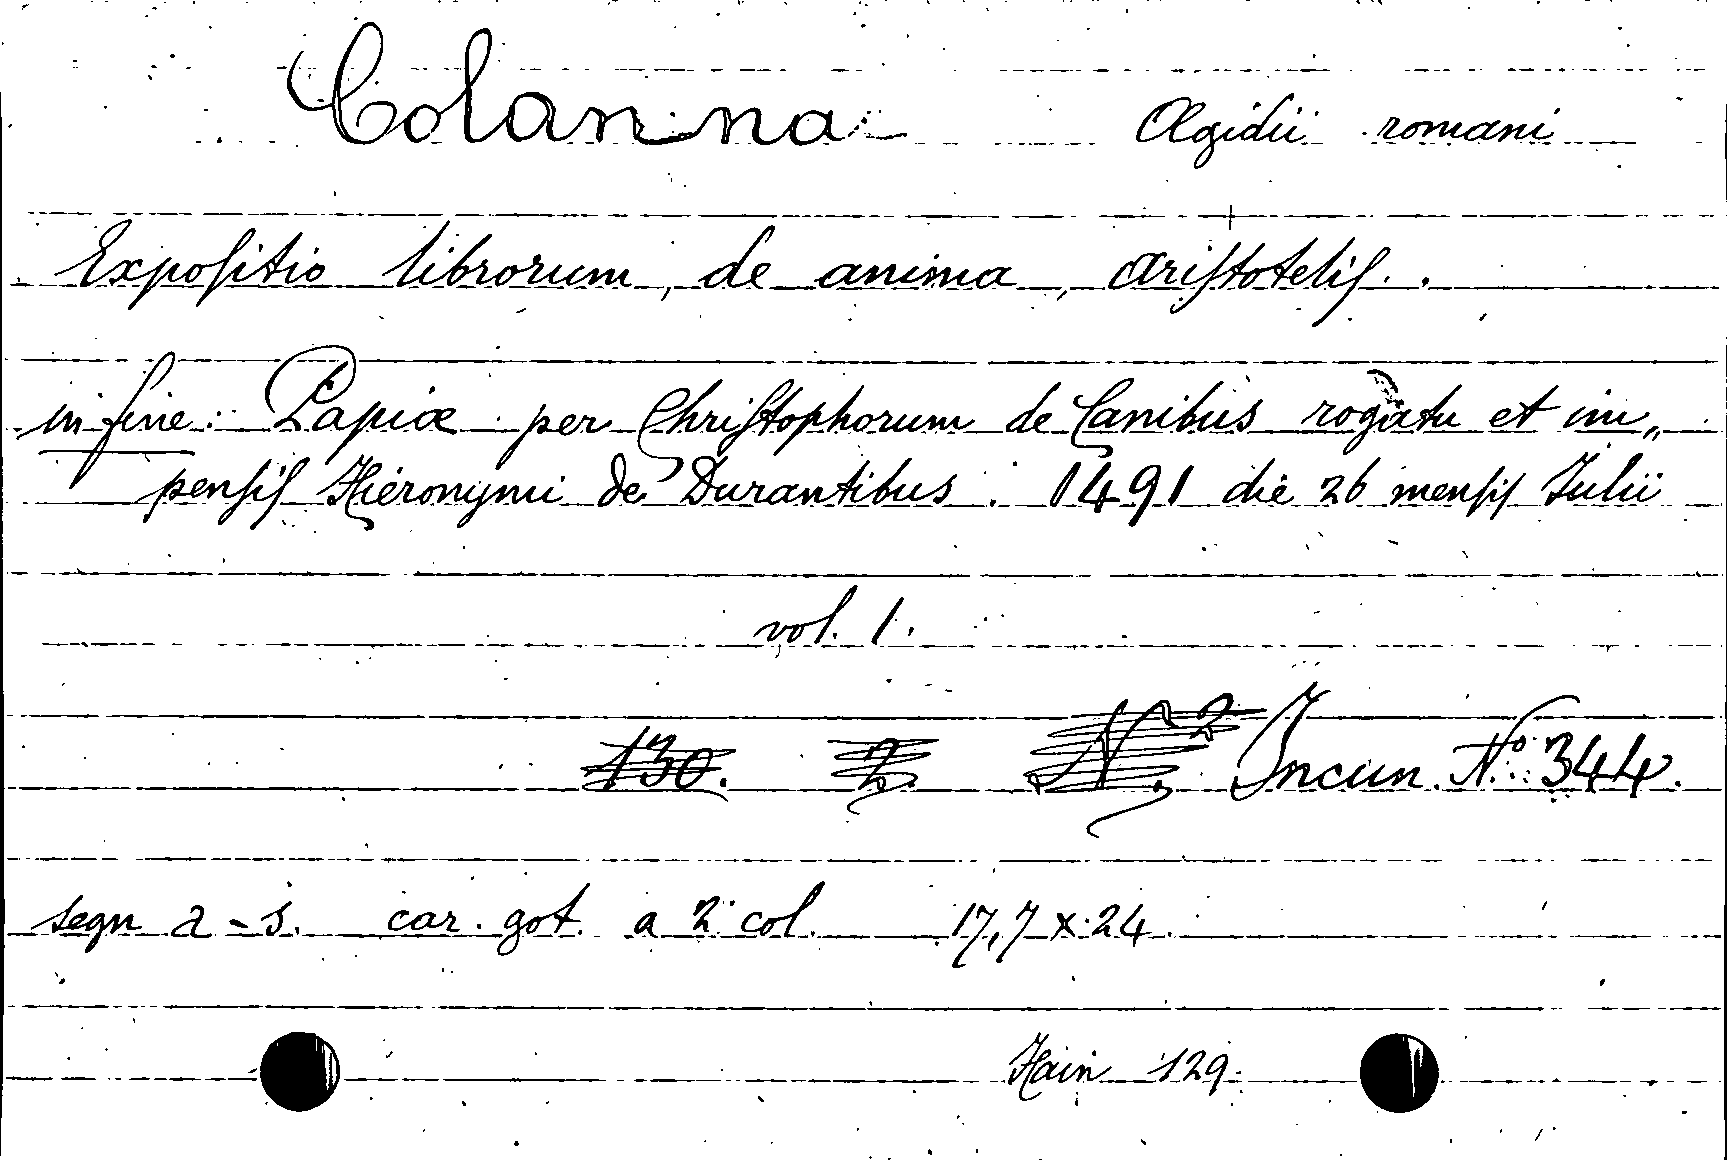 Colanna Ægidii romani
Expoſitio librorum, de anima, Ariſtoteliſ.
in fine: Papiæ per Chriſtophorum de Canibus rogatu et im„
penſiſ Hieronymi de Durantibus. 1491 die 26 menſiſ Julii
vol. 1.
130. 2. N. 2 Incun. Nº 344.
segn a - s. car. got. a 2 col. 17,7 x 24
Hain 129.